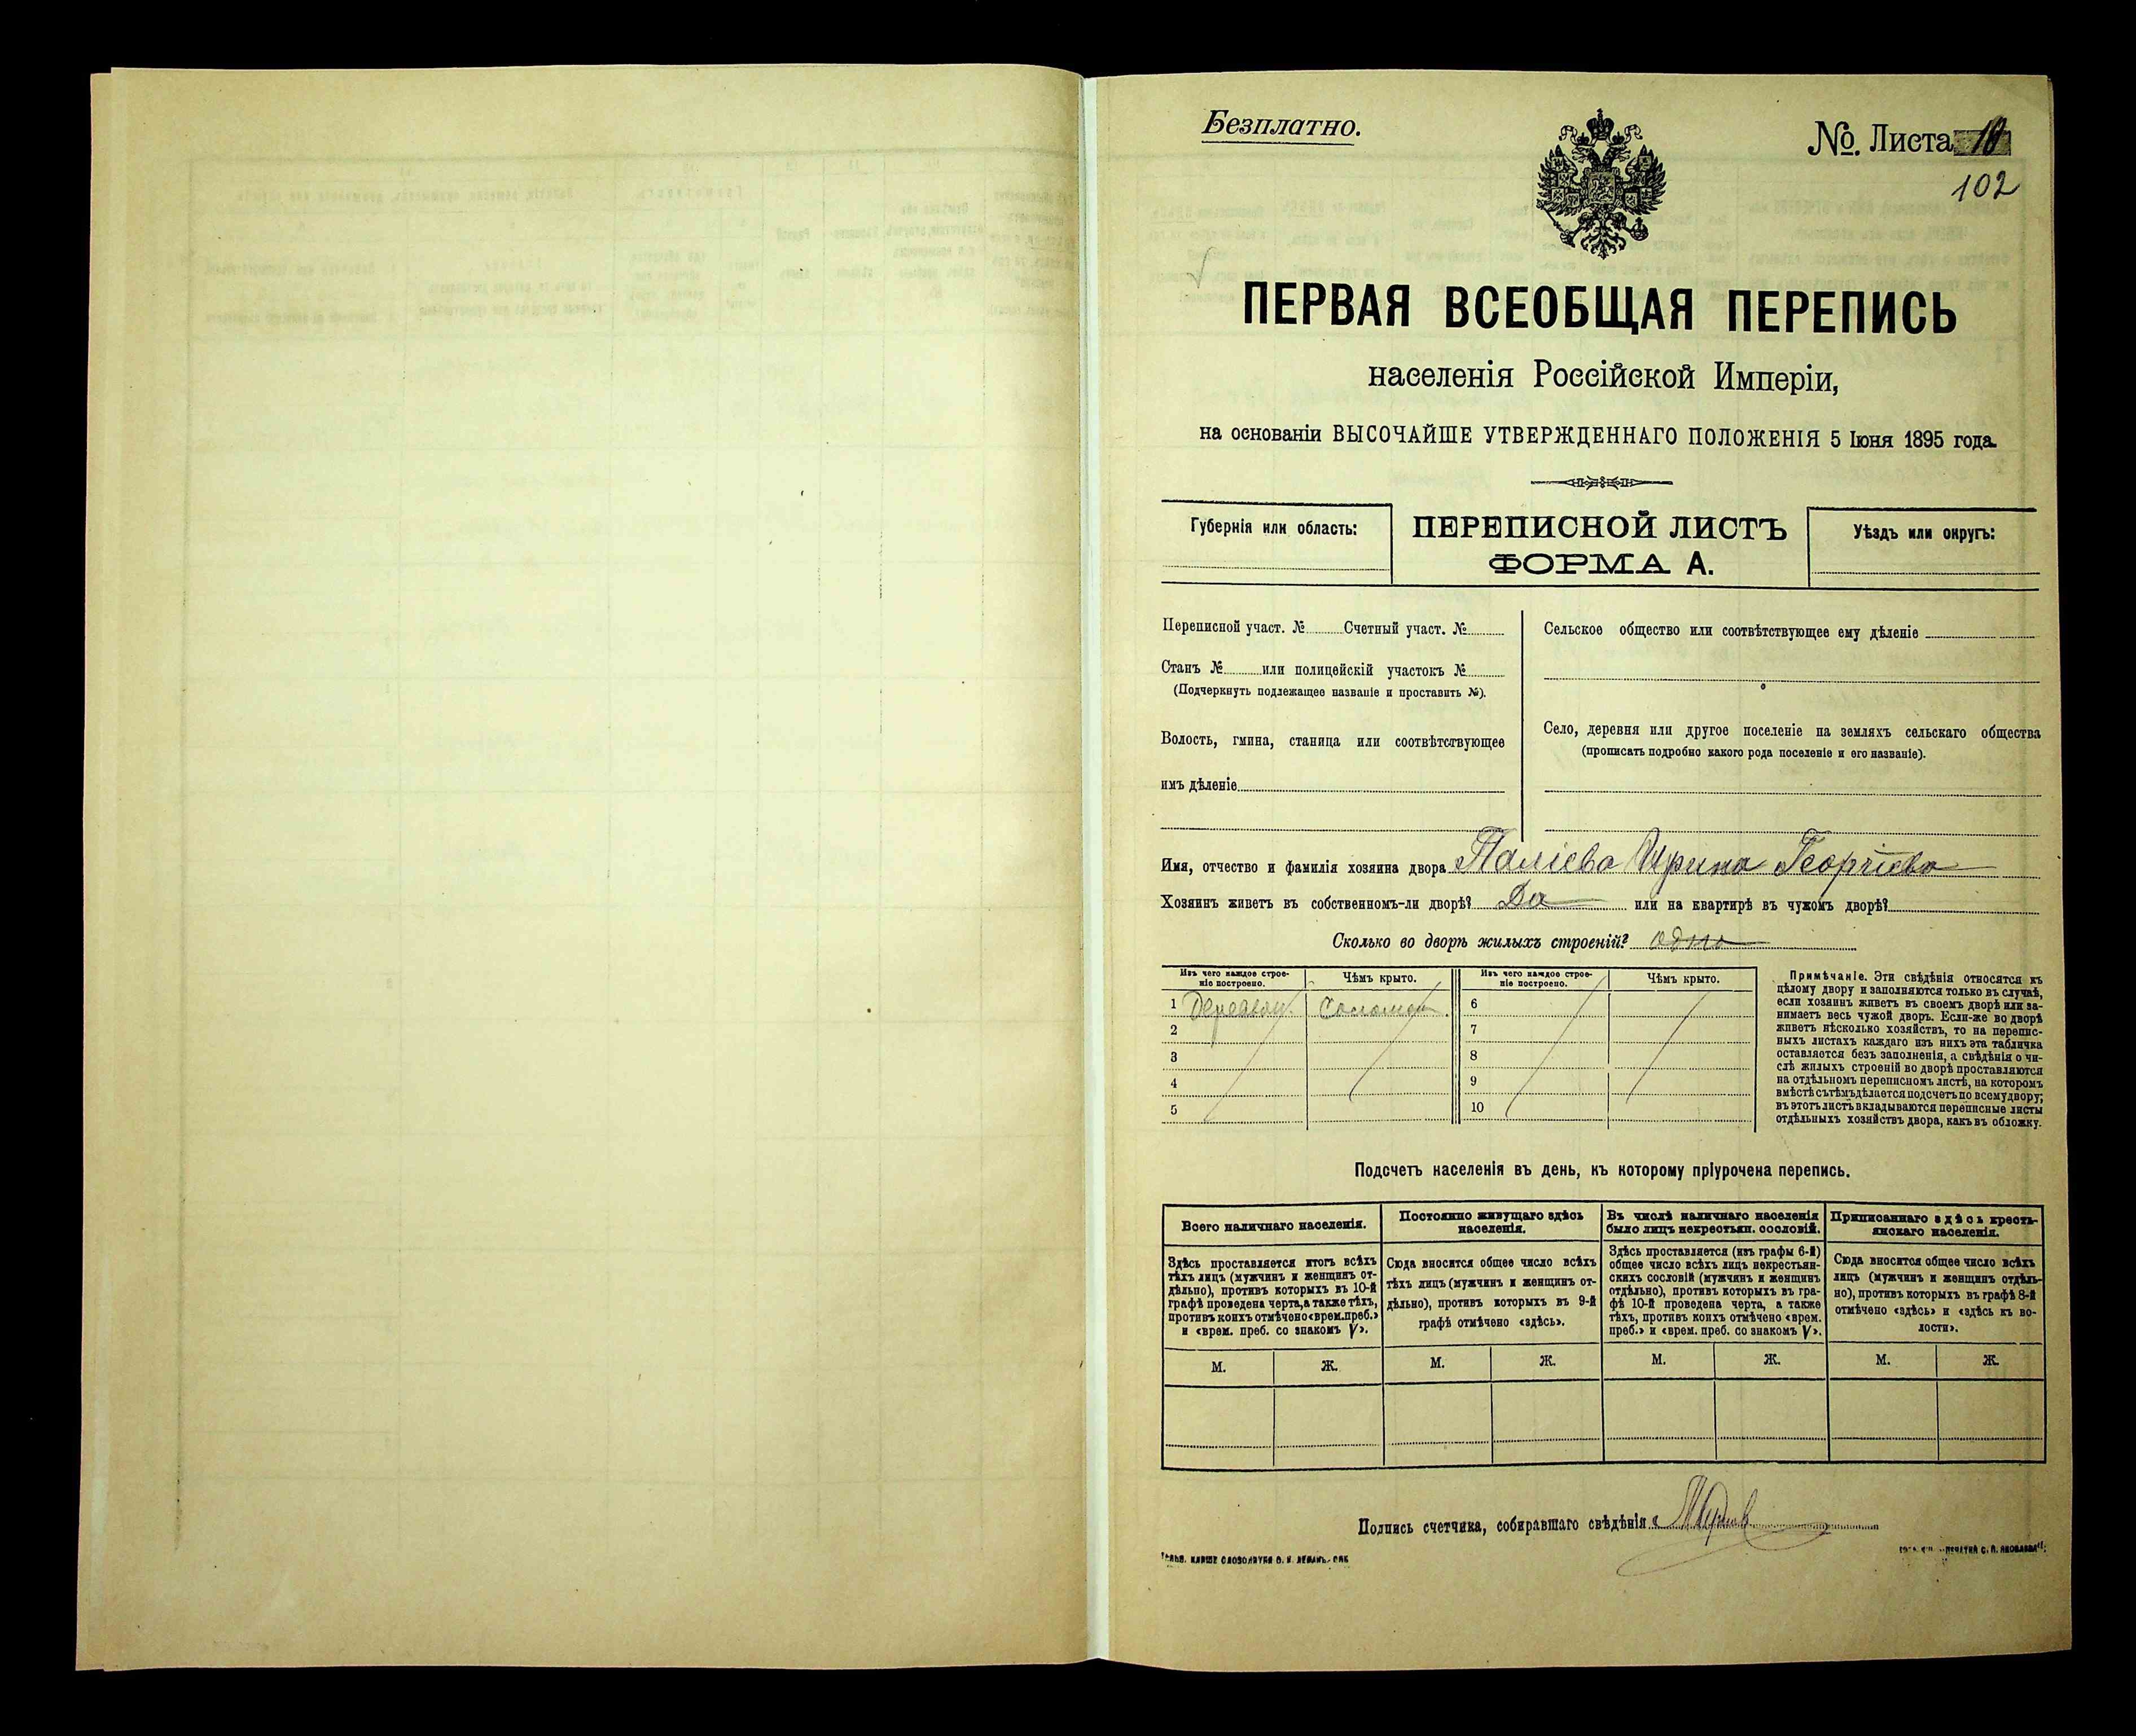 Безплатно.
№. Листа 18
102
ПЕРВАЯ ВСЕОБЩАЯ ПЕРЕПИСЬ
населенія Россійской Имперіи,
на основаніи ВЫСОЧАЙШЕ УТВЕРЖДЕННАГО ПОЛОЖЕНІЯ 5 Іюня 1895 года.
Губернія или область:
ПЕРЕПИСНОЙ ЛИСТЪ
ФОРМА А.
Уѣздъ или округъ:
Переписной участ. № Счетный участ. №
Станъ № или полицейскій участокъ №
(Подчеркнуть подлежащее названіе и проставить №).
Волость, гмина, станица или соотвѣтствующее
имъ дѣленіе
Сельское общество или соотвѣтствующее ему дѣленіе
Село, деревня или другое поселеніе на земляхъ сельскаго общества
(прописать подробно какого рода поселеніе и его названіе).
Имя, отчество и фамилія хозяина двора Паліева Ирина Георгіева
Хозяинъ живетъ въ собственномъ-ли дворѣ? Да или на квартирѣ въ чужомъ дворѣ?
Сколько во дворѣ жилыхъ строеній? одно
Изъ чего каждое строе-
ніе построено.
Чѣмъ крыто.
Изъ чего каждое строе-
ніе построено.
Чѣмъ крыто.
1 Деревян. Солом 6
2 7
3 8
4 9
5 10
Примѣчаніе. Эти свѣдѣнія относятся къ
цѣлому двору и заполняются только въ случаѣ,
если хозяинъ живетъ въ своемъ дворѣ или за-
нимаетъ весь чужой дворъ. Если-же во дворѣ
живетъ нѣсколько хозяйствъ, то на перепис-
ныхъ листахъ каждаго изъ нихъ эта табличка
оставляется безъ заполненія, а свѣдѣнія о чи-
слѣ жилыхъ строеній во дворѣ проставляются
на отдѣльномъ переписномъ листѣ, на которомъ
вмѣстѣ съ тѣмъ дѣлается подсчетъ по всему двору;
въ этотъ листъ вкладываются переписные листы
отдѣльныхъ хозяйствъ двора, какъ въ обложку.
Подсчетъ населенія въ день, къ которому пріурочена перепись.
Всего наличнаго населенія.
Здѣсь проставляется итогъ всѣхъ
тѣхъ лицъ (мужчинъ и женщинъ от-
дѣльно), противъ которыхъ въ 10-й
графѣ проведена черта, а также тѣхъ,
противъ коихъ отмѣчено «врем. преб.»
и «врем. преб. со знакомъ V».
Постоянно живущаго здѣсь
населенія.
Сюда вносится общее число всѣхъ
тѣхъ лицъ (мужчинъ и женщинъ от-
дѣльно), противъ которыхъ въ 9-й
графѣ отмѣчено «здѣсь».
Въ числѣ наличнаго населенія
было лицъ некрестьян. сословій.
Здѣсь проставляется (изъ графы 6-й)
общее число всѣхъ лицъ некрестьян-
скихъ сословій (мужчинъ и женщинъ
отдѣльно), противъ которыхъ въ гра-
фѣ 10-й проведена черта, а также
тѣхъ, противъ коихъ отмѣчено «врем.
преб.» и «врем. преб. со знакомъ V».
Приписаннаго здѣсь кресть-
янскаго населенія.
Сюда вносится общее число всѣхъ
лицъ (мужчинъ и женщинъ отдѣль-
но), противъ которыхъ въ графѣ 8-й
отмѣчено «здѣсь» и «здѣсь къ во-
лости».
М. Ж. М. Ж. М. Ж. М. Ж.
Подпись счетчика, собиравшаго свѣдѣнія